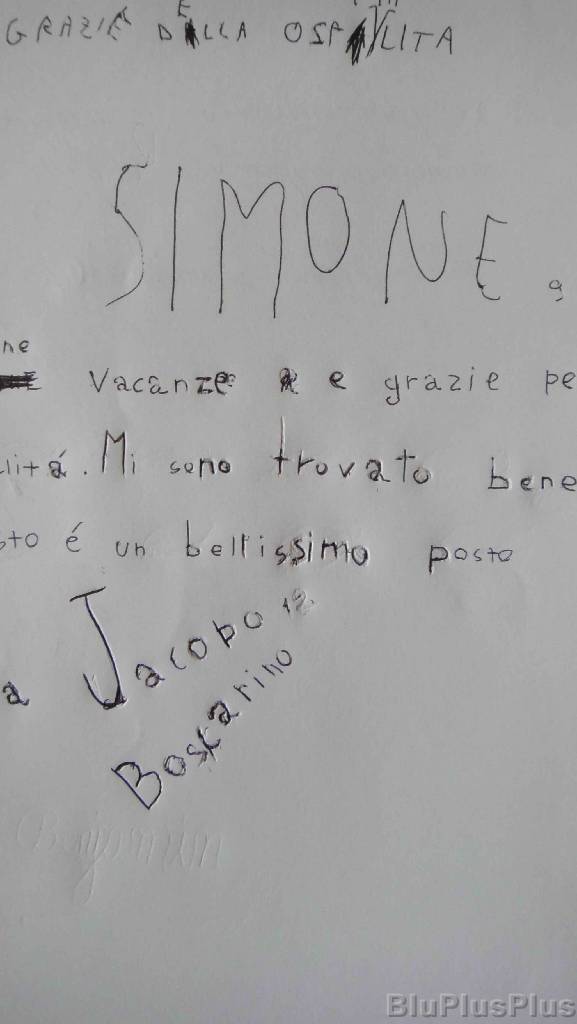 GRAZIE DELLA OSPITALITA
SIMONE. 9
ne
Vacanze e grazie pe
lità. Mi sono trovato bene
sto é un bellissimo posto
a Jacopo 12
Boscarino
Benjamin
BluPlusPlus